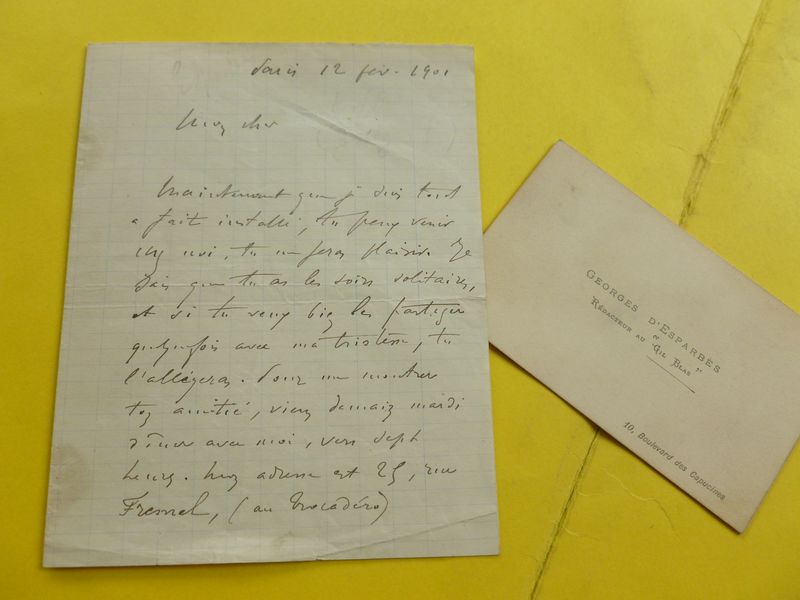 Paris 12 fév. 1901
Mon cher
Maintenant que je suis tout
a fait installé, tu peux venir
chez moi, tu me feras plaisir. Je
sais que tu as les soirs solitaires,
et si tu veux bien les partager
quelquefois avec ma tristesse, tu
l'allègeras. Pour me montrer
ton amitié, viens demain mardi
dîner avec moi, vers sept
heures. Mon adresse est 25, rue
Fresnel, (au Trocadéro)
GEORGES D'ESPARBÈS
RÉDACTEUR AU "GIL BLAS"
10, Boulevard des Capucines